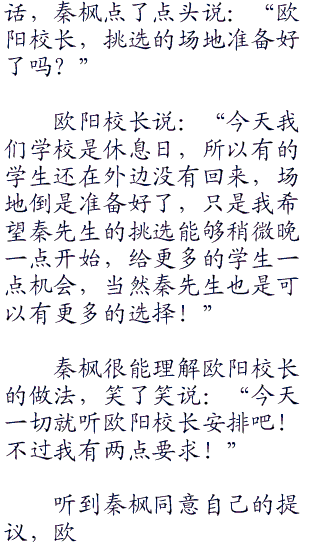 话，秦枫点了点头说：“欧
阳校长，挑选的场地准备好
了吗？”
欧阳校长说：“今天我
们学校是休息日，所以有的
学生还在外边没有回来，场
地倒是准备好了，只是我希
望秦先生的挑选能够稍微晚
一点开始，给更多的学生一
点机会，当然秦先生也是可
以有更多的选择！”
秦枫很能理解欧阳校长
的做法，笑了笑说：“今天
一切就听欧阳校长安排吧！
不过我有两点要求！”
听到秦枫同意自己的提
议，欧